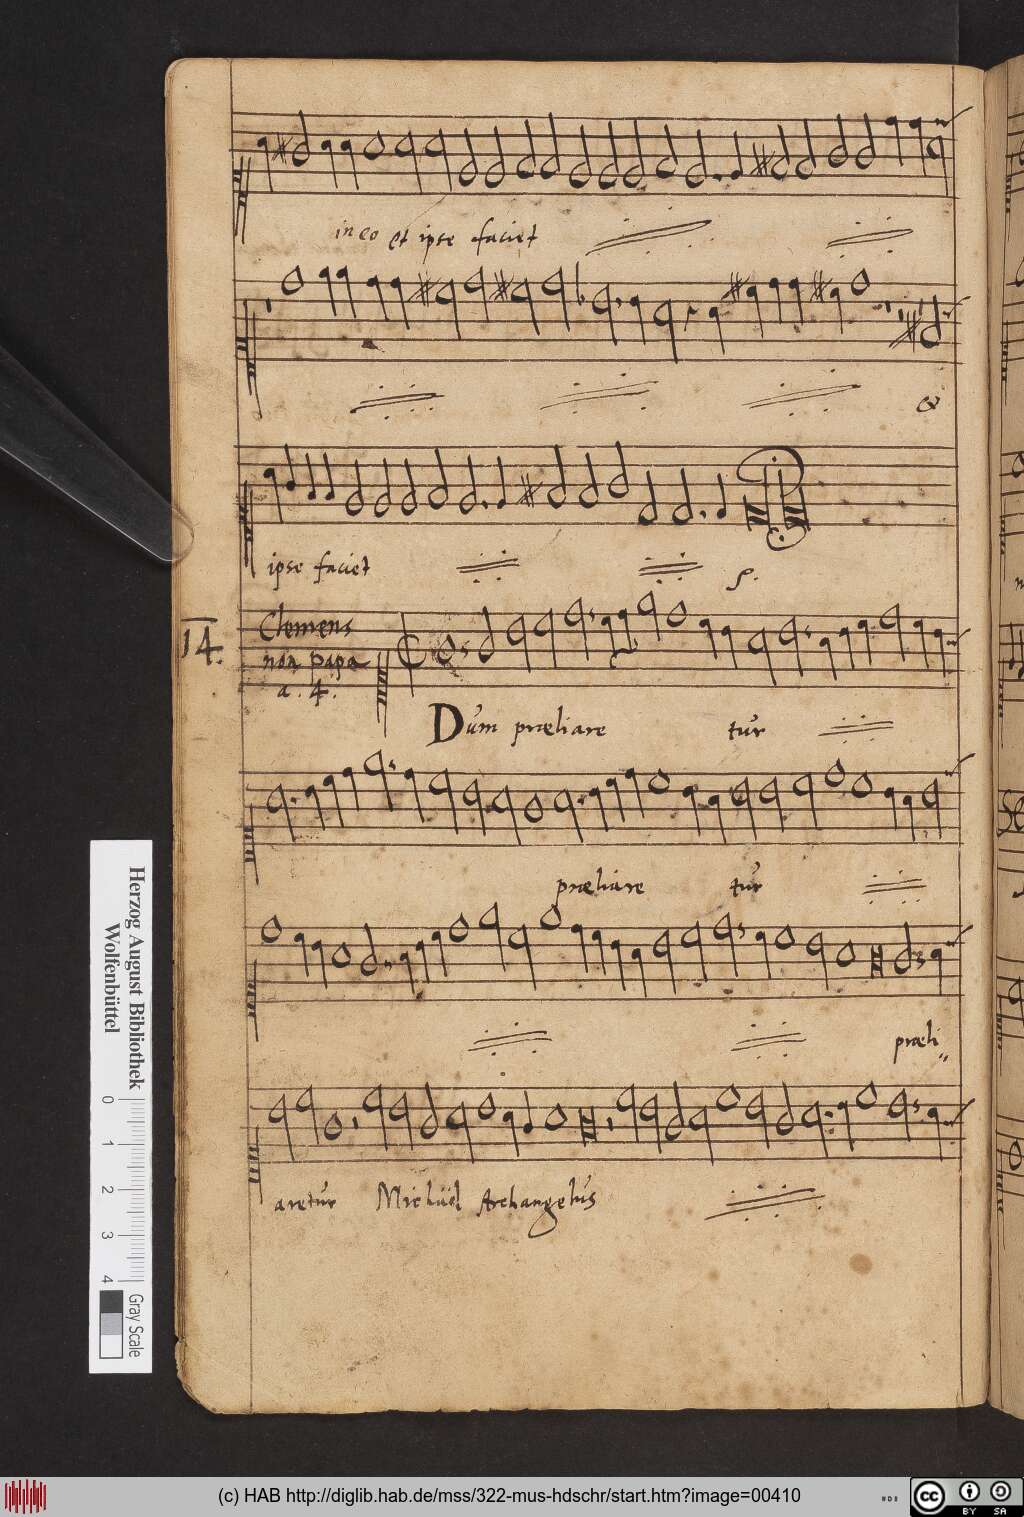 in eo et ipse faciet
&
ipse faciet
14.
Clemens
non papa
a. 4.
Dum præliare tur
præliare tur
præli
aretur Michäel Archangelus
Herzog August Bibliothek
Wolfenbüttel
0 1 2 3 4
Gray Scale
(c) HAB http://diglib.hab.de/mss/322-mus-hdschr/start.htm?image=00410
cc BY SA